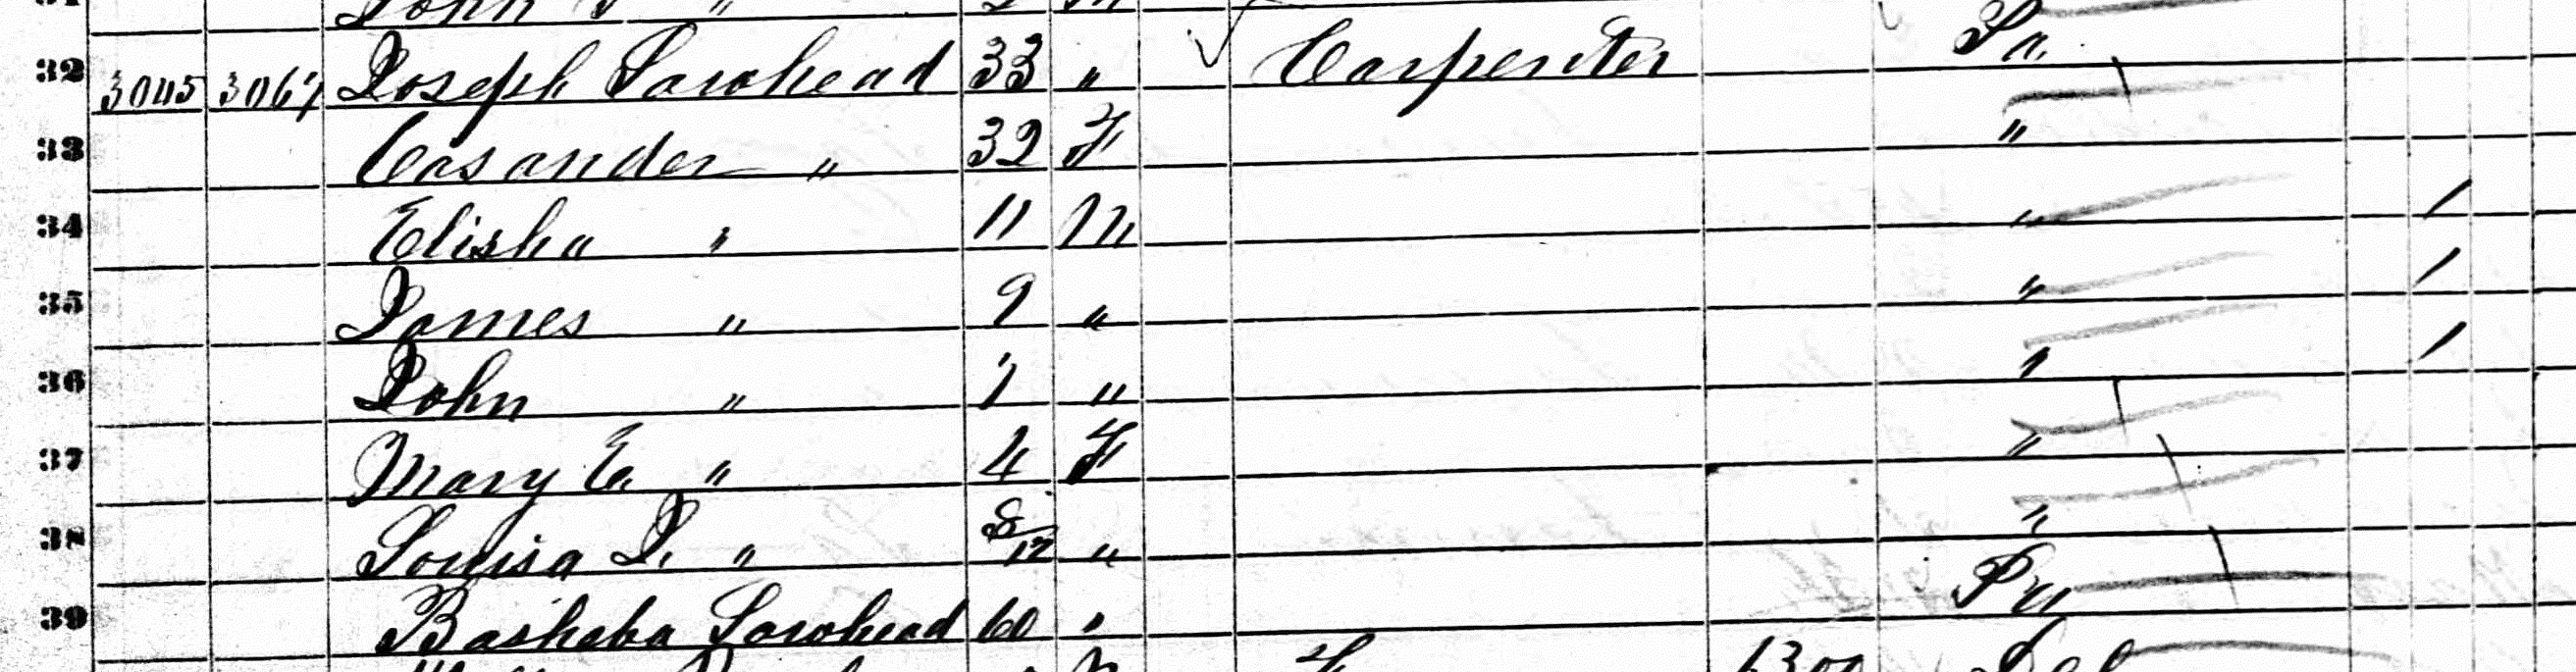 32 3045 3067 Joseph Sarohead 33 " Carpenter Pa.
33 Casander " 32 F "
34 Elisha " 11 M " /
35 James " 9 " " /
36 John " 7 " " /
37 Mary E. " 4 F "
38 Louisa J. " 8/12 " "
39 Bashaba Sarohead 60 " Pa